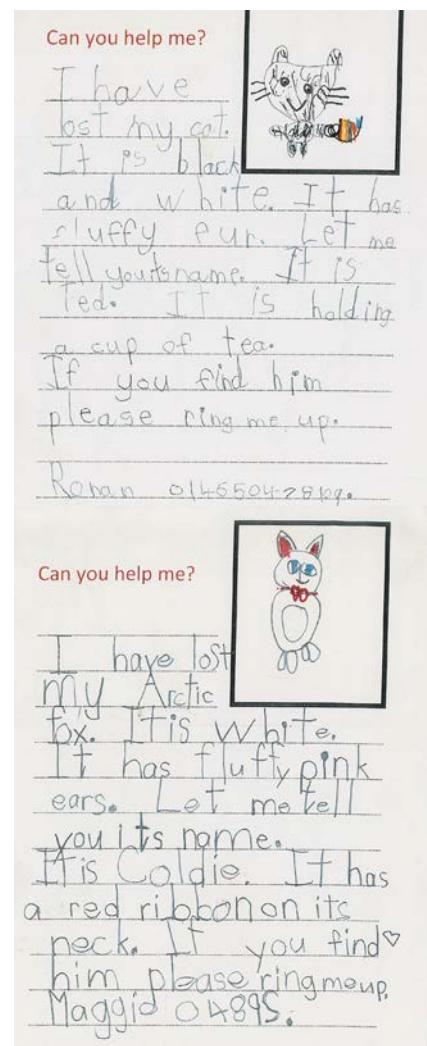 Can you help me?
I have
lost my cat.
It is black
and white. It has
fluffy fur. Let me
tell you its name. It is
Ted. It is holding
a cup of tea.
If you find him
please ring me up.
Ronan
Can you help me?
I have lost
my Arctic
fox. It is white.
It has fluffy pink
ears. Let me tell
you its name.
It is Coldie. It has
a red ribbon on its
neck. If you find
him please ring me up.
Maggie 04895.